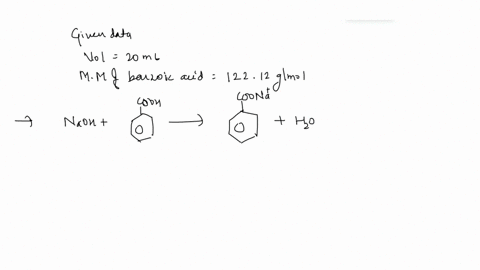 Given data
Vol = 20 mL
M.M of benzoic acid = 122.12 g/mol
COOH
COONa+
→ NaOH + → + H2O